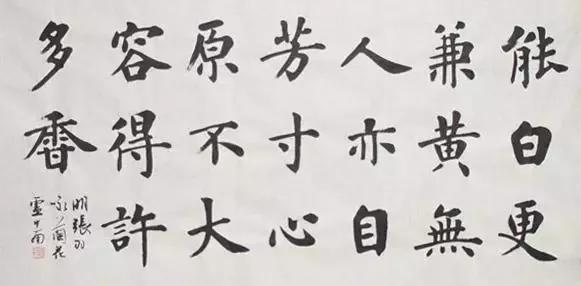 能白更
兼黄無
人亦自
芳寸心
原不大
容得許
多香
明張羽
詠蘭花
盧中南